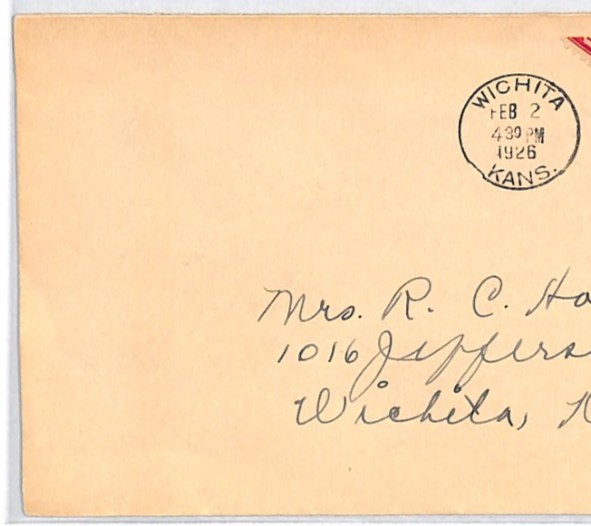 WICHITA
FEB 2
4 30 PM
1926
KANS.
Mrs. R. C. Ho
1016 Jeffers
Wichita, K